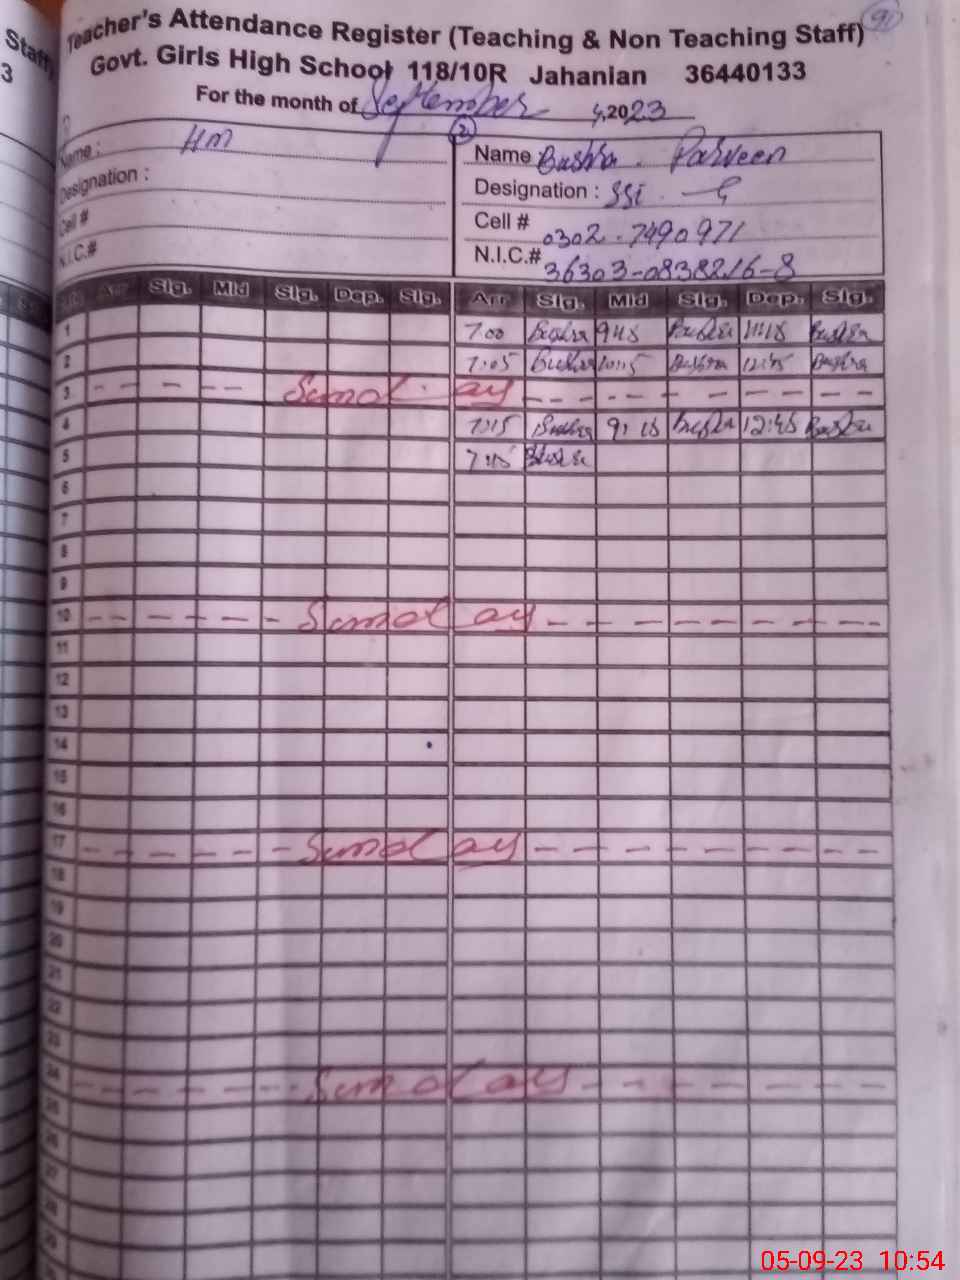 Staff)
3
91
Teacher's Attendance Register (Teaching & Non Teaching Staff)
Govt. Girls High School 118/10R Jahanian 36440133
For the month of September 2023
Name : HM
Designation :
Cell #
N.I.C.#
2
Name Bushra Parveen
Designation :
Cell # 0302-7490971
N.I.C.# 36303-0838216-8
Arr Sig. Mid Sig. Dep. Sig. Arr Sig. Mid Sig. Dep. Sig.
1 7:00 Bushra Bushra Bushra
2 7:05 Bushra 10:15 Bushra Bushra
3 Sunday
4 7:15 Bushra 9:15 Bushra 12:45 Bushra
5 Bushra
6
7
8
9
10 Sunday
11
12
13
14
15
16
17 Sunday
18
19
20
21
22
23
24 Sunday
25
26
27
28
29
05-09-23 10:54